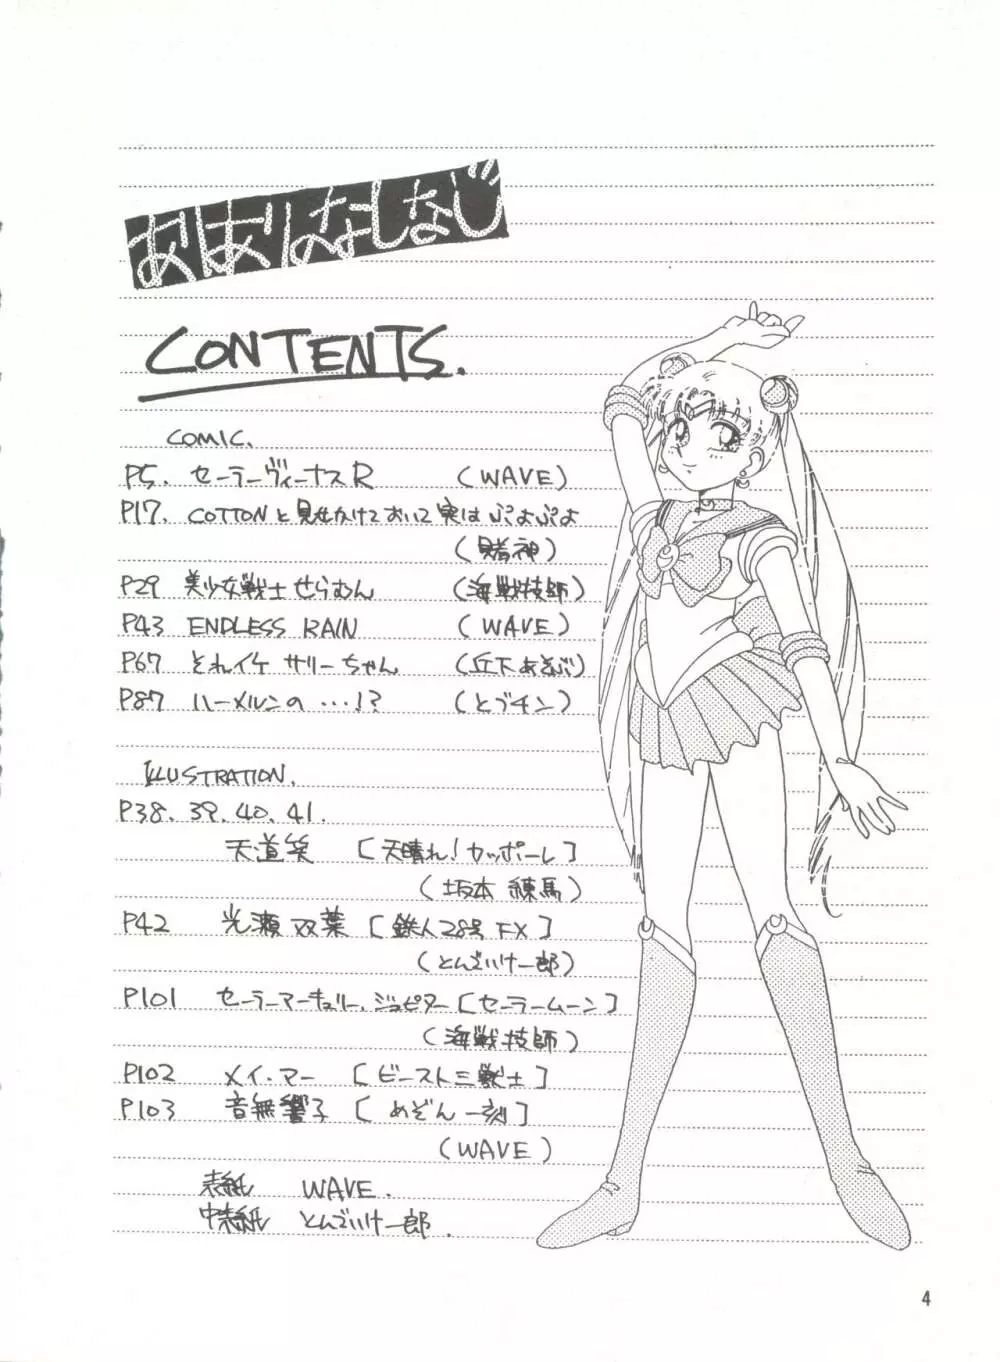 あはりなしなじ
CONTENTS.
COMIC.
P5. セーラーヴィーナスR (WAVE)
P17. COTTONと見せかけておいて実はぷよぷよ
(賭神)
P29 美少女戦士せらむん (海戦技師)
P43 ENDLESS RAIN (WAVE)
P67 それイケ サリーちゃん (丘下あそぶ)
P87 ハーメルンの...!? (とブチン)
ILLUSTRATION.
P38. 39. 40. 41.
天道笑 [天晴れ!カッポーレ]
(坂本 練馬)
P42 光瀬 双葉 [鉄人28号FX]
(とんでいけ一郎)
P101 セーラーマーキュリー.ジュピター[セーラームーン]
(海戦技師)
P102 メイ・マー [ビースト三獣士]
P103 音無響子 [めぞん一刻]
(WAVE)
表紙 WAVE.
中表紙 とんでいけ一郎.
4